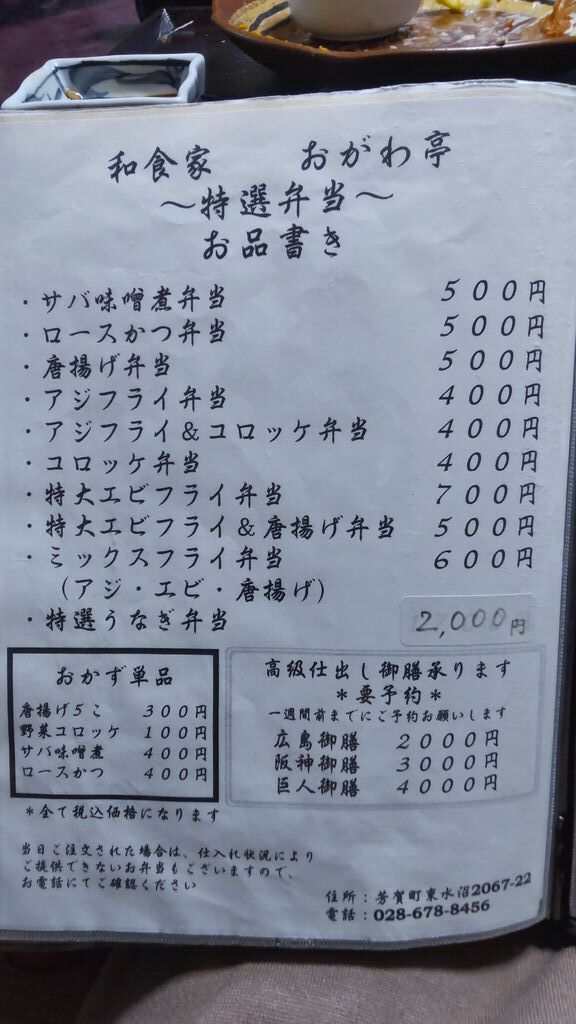 和食家 おがわ亭
〜特選弁当〜
お品書き
・サバ味噌煮弁当 500円
・ロースかつ弁当 500円
・唐揚げ弁当 500円
・アジフライ弁当 400円
・アジフライ&コロッケ弁当 400円
・コロッケ弁当 400円
・特大エビフライ弁当 700円
・特大エビフライ&唐揚げ弁当 500円
・ミックスフライ弁当 600円
(アジ・エビ・唐揚げ)
・特選うなぎ弁当 2,000円
おかず単品
唐揚げ5こ 300円
野菜コロッケ 100円
サバ味噌煮 400円
ロースかつ 400円
高級仕出し御膳承ります
*要予約*
一週間前までにご予約お願いします
広島御膳 2000円
阪神御膳 3000円
巨人御膳 4000円
*全て税込価格になります
当日ご注文された場合は、仕入れ状況により
ご提供できないお弁当もございますので、
お電話にてご確認ください
住所:芳賀町東水沼2067-22
電話:028-678-8456